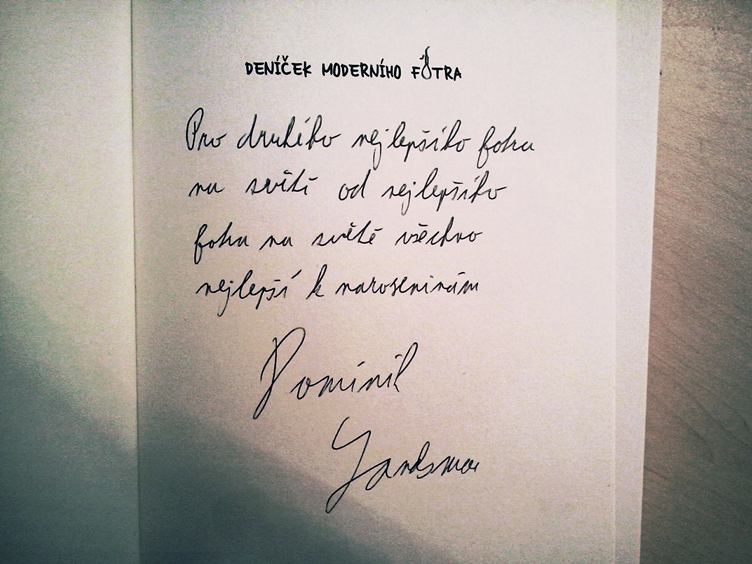 DENÍČEK MODERNÍHO FOTRA
Pro druhého nejlepšího fotra
na světě od nejlepšího
fotra na světě všechno
nejlepší k narozeninám
Dominik
Landsman